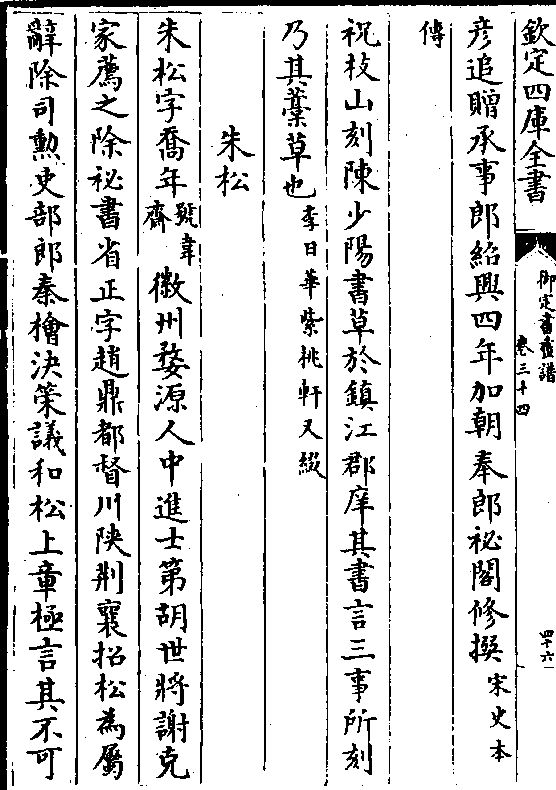 欽定四庫全書
御定書畫譜
卷三十四
四十六
彥追贈承事郎紹興四年加朝奉郎祕閣修撰宋史本
傳
祝枝山刻陳少陽書草於鎮江郡庠其書言三事所刻
乃其藁草也李日華紫桃軒又綴
朱松
朱松字喬年號韋齋徽州婺源人中進士第胡世將謝克
家薦之除祕書省正字趙鼎都督川陝荊襄招松為屬
辭除司勲吏部郎秦檜決策議和松上章極言其不可